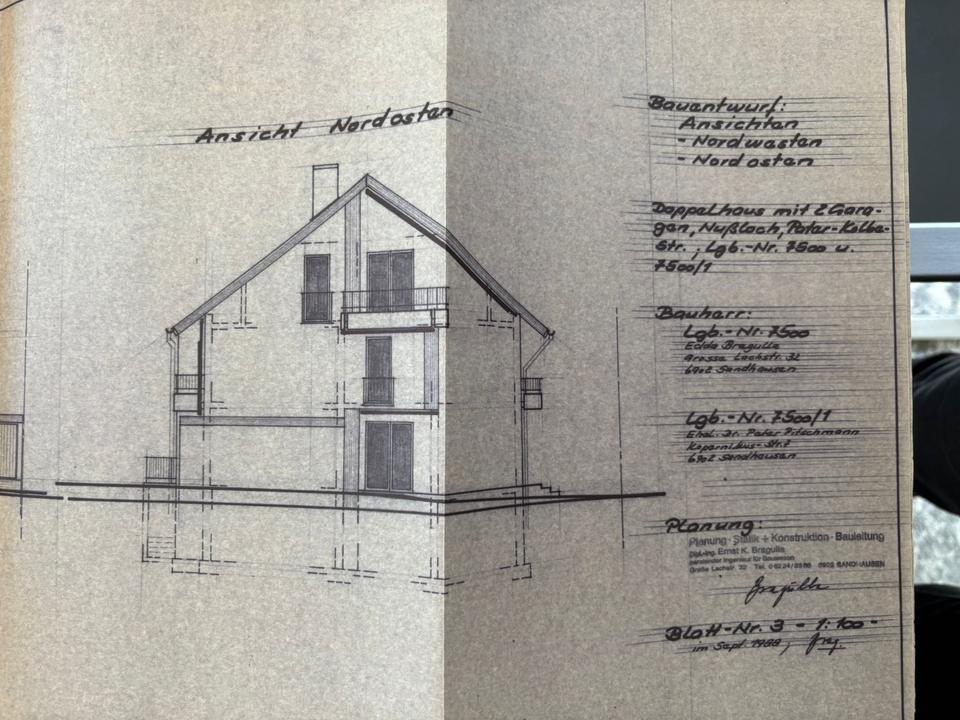 Ansicht Nordosten
Bauentwurf:
Ansichten
- Nordwesten
- Nordosten
Doppelhaus mit 2 Gara-
gen, Nußloch, Pater-Kolbe-
Str.; Lgb.-Nr. 7500 u.
7500/1
Bauherr:
Lgb.-Nr. 7500
Edda Bragulla
Grosse Lachstr. 32
6902 Sandhausen
Lgb.-Nr. 7500/1
Ehel. Dr. Peter Pitschmann
Kopernikus-Str. 7
6902 Sandhausen
Planung:
Planung · Statik + Konstruktion · Bauleitung
Dipl.-Ing. Ernst K. Bragulla
beratender Ingenieur für Bauwesen
Große Lachstr. 32 Tel. 06224/ 6902 SANDHAUSEN
Bragulla
Blatt-Nr. 3 - 1:100 -
im Sept. 1988,